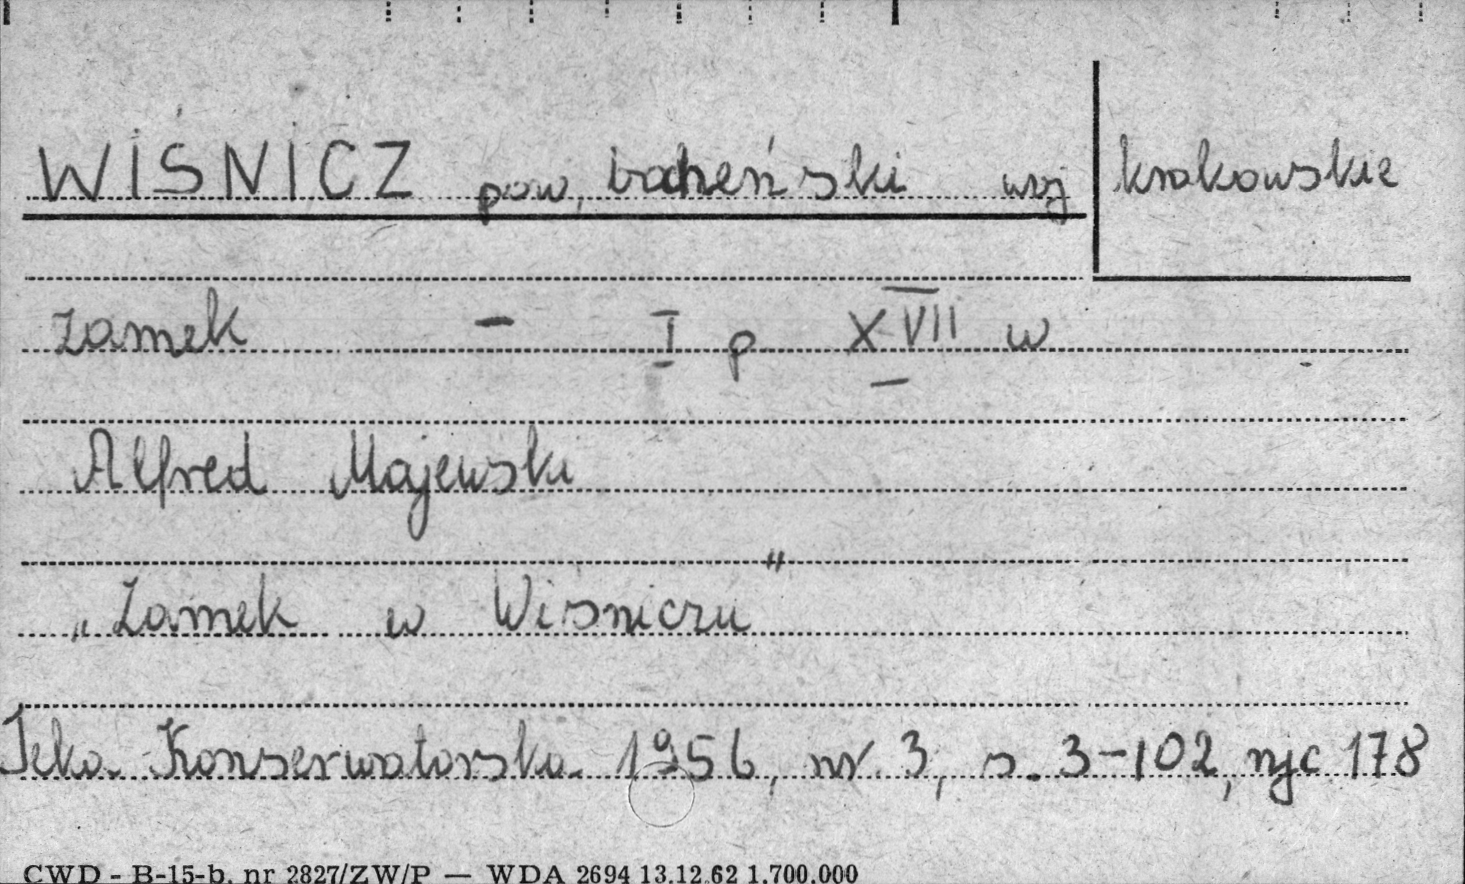 WIŚNICZ pow. bocheński woj krakowskie
zamek - I p XVII w
Alfred Majewski
„Zamek w Wiśniczu”
Teka Konserwatorska 1956, nr. 3, s. 3-102, ryc 178
CWD - B-15-b. nr 2827/ZW/P — WDA 2694 13.12.62 1.700.000